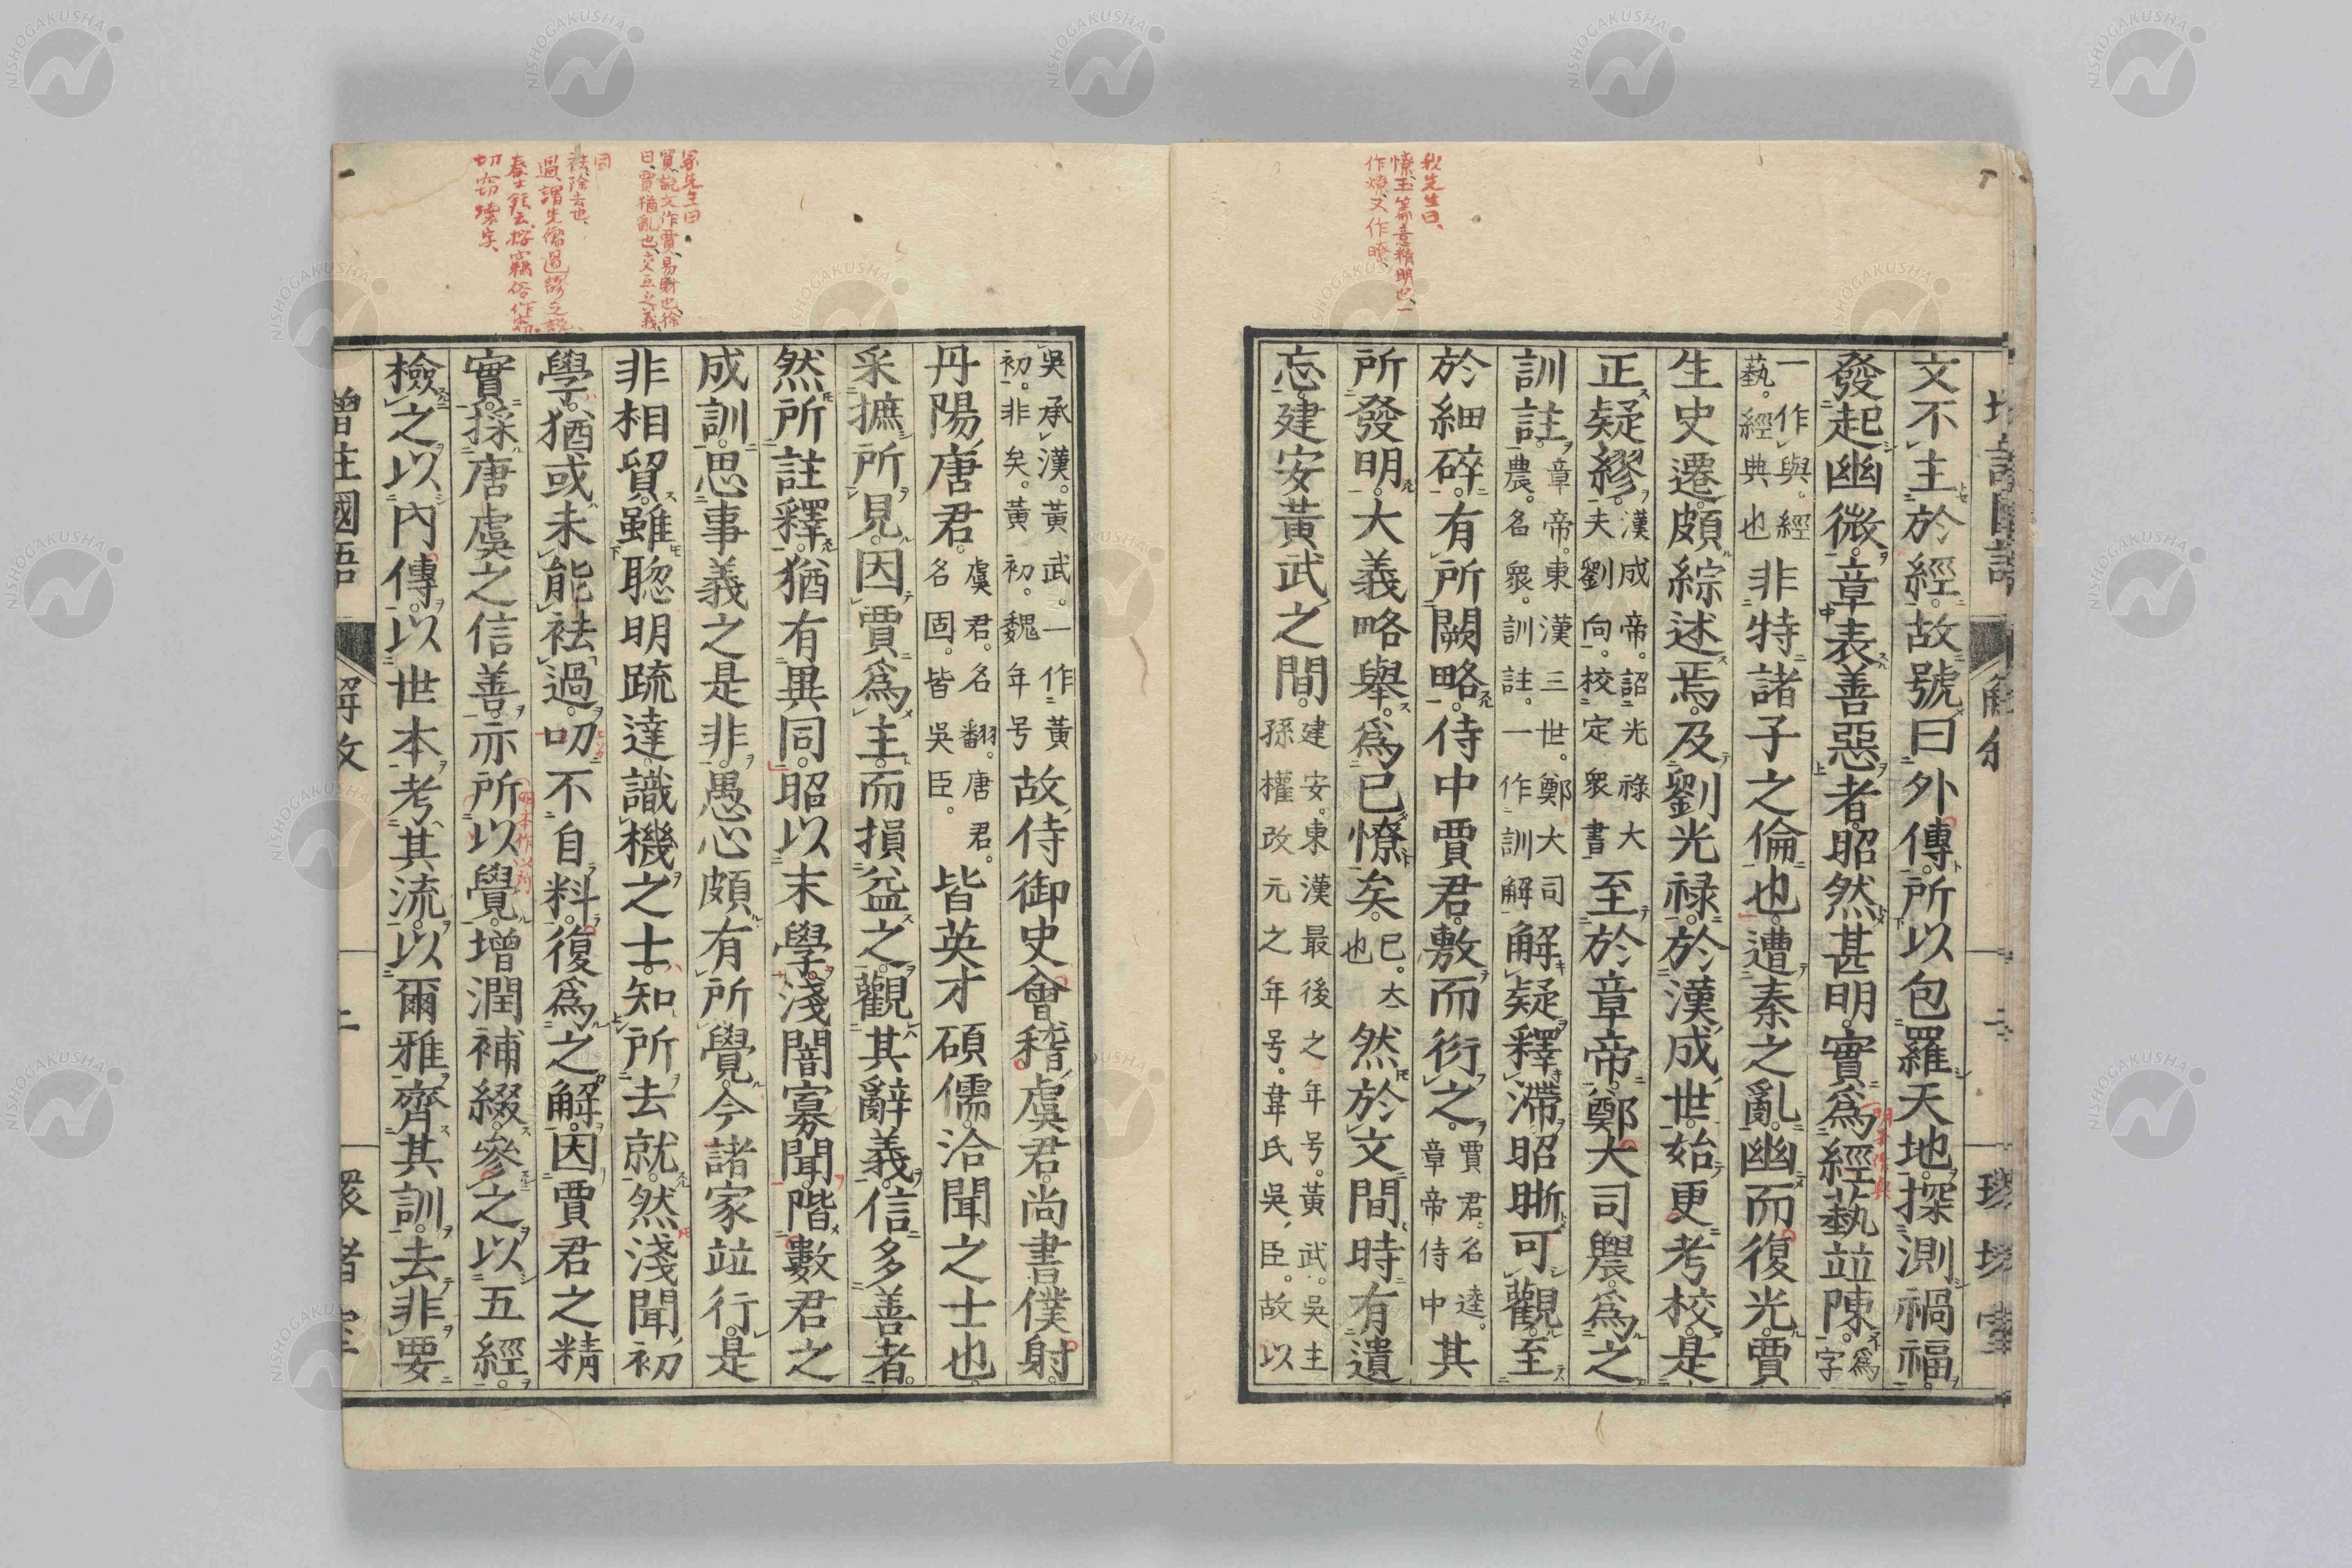 文不主於經故號曰外傳所以包羅天地探測禍福
發起幽微章表善惡者昭然甚明實爲經藝竝陳爲字
一作與經藝經典也非特諸子之倫也遭秦之亂幽而復光賈
生史遷頗綜述焉及劉光祿於漢成世始更考校是
正疑繆漢成帝詔光祿大夫劉向校定衆書至於章帝鄭大司農爲之
訓註章帝東漢三世鄭大司農名衆訓註一作訓解解疑釋滯昭晣可觀至
於細碎有所闕略侍中賈君敷而衍之賈君名逵章帝侍中其
所發明大義略舉爲已憭矣已太也然於文間時有遺
忘建安黃武之間建安東漢最後之年号黃武吳主孫權改元之年号韋氏吳臣故以
吳承漢黃武一作黃初非矣黃初魏年号故侍御史會稽虞君尚書僕射
丹陽唐君虞君名翻唐君名固皆吳臣皆英才碩儒洽聞之士也
采摭所見因賈爲主而損益之觀其辭義信多善者
然所註釋猶有異同昭以末學淺闇寡聞階數君之
成訓思事義之是非愚心頗有所覺今諸家竝行是
非相貿雖聡明疏達識機之士知所去就然淺聞初
學猶或未能袪過叨不自料復爲之解因賈君之精
實採唐虞之信善亦所以覺增潤補綴參之以五經
檢之以內傳以世本考其流以爾雅齊其訓去非要
增註國語
解敘
二
明本作與
明本作以所
秋先生曰
憭玉篇意精明也一
作燎又作瞭
冢先生曰
貿說文作貿易財也徐
曰貿猶亂也交互之義
同
袪除去也
過謂先儒過謬之說